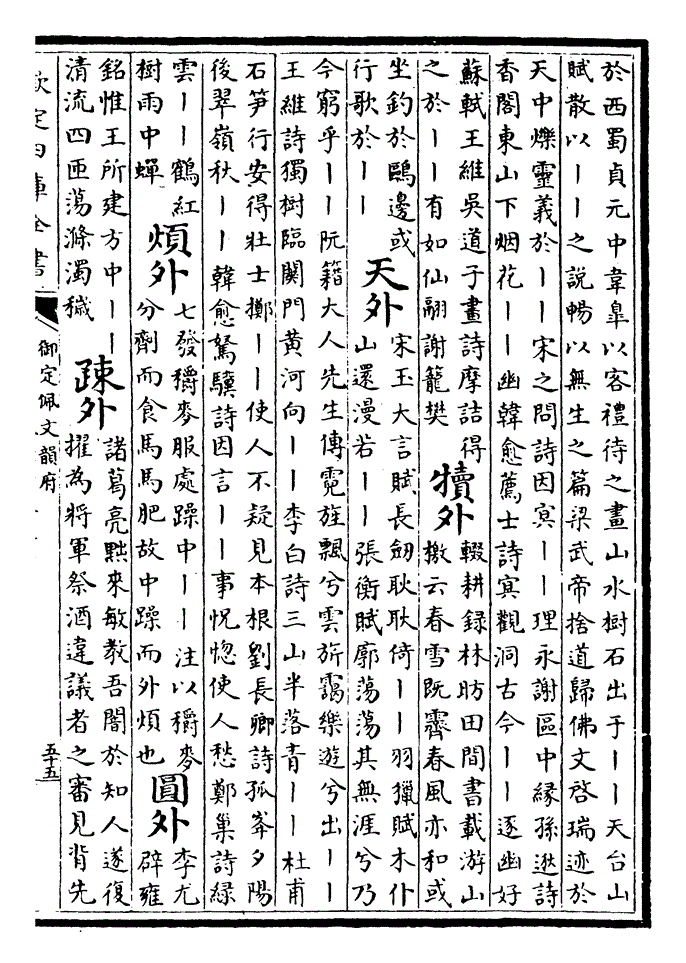 於西蜀貞元中韋臯以客禮待之畫山水樹石出于丨丨天台山
賦散以丨丨之說暢以無生之篇梁武帝捨道歸佛文啓瑞迹於
天中爍靈義於丨丨宋之問詩因㝠丨丨理永謝區中緣孫逖詩
香閣東山下烟花丨丨幽韓愈薦士詩㝠觀洞古今丨丨逐幽好
蘇軾王維吳道子畫詩摩詰得
之於丨丨有如仙翮謝籠樊
犢外
輟耕録林昉田間書載游山
檄云春雪既霽春風亦和或
坐釣於鷗邊或
行歌於丨丨
天外
宋玉大言賦長劒耿耿倚丨丨羽獵賦木仆
山還漫若丨丨張衡賦廓蕩蕩其無涯兮乃
今窮乎丨丨阮籍大人先生傳霓旌飄兮雲旂靄樂遊兮出丨丨
王維詩獨樹臨關門黄河向丨丨李白詩三山半落青丨丨杜甫
石笋行安得壯士擲丨丨使人不疑見本根劉長卿詩孤峯夕陽
後翠嶺秋丨丨韓愈駑驥詩因言丨丨事怳惚使人愁鄭巢詩緑
雲丨丨鶴紅
樹雨中蟬
煩外
七發穱麥服處躁中丨丨注以穱麥
分劑而食馬馬肥故中躁而外煩也
圓外
李尤
辟雍
銘惟王所建方中丨丨
清流四匝蕩滌濁穢
疎外
諸葛亮黜來敏教吾闇於知人遂復
擢為將軍祭酒違議者之審見背先
欽定四庫全書
御定佩文韻府
五十五